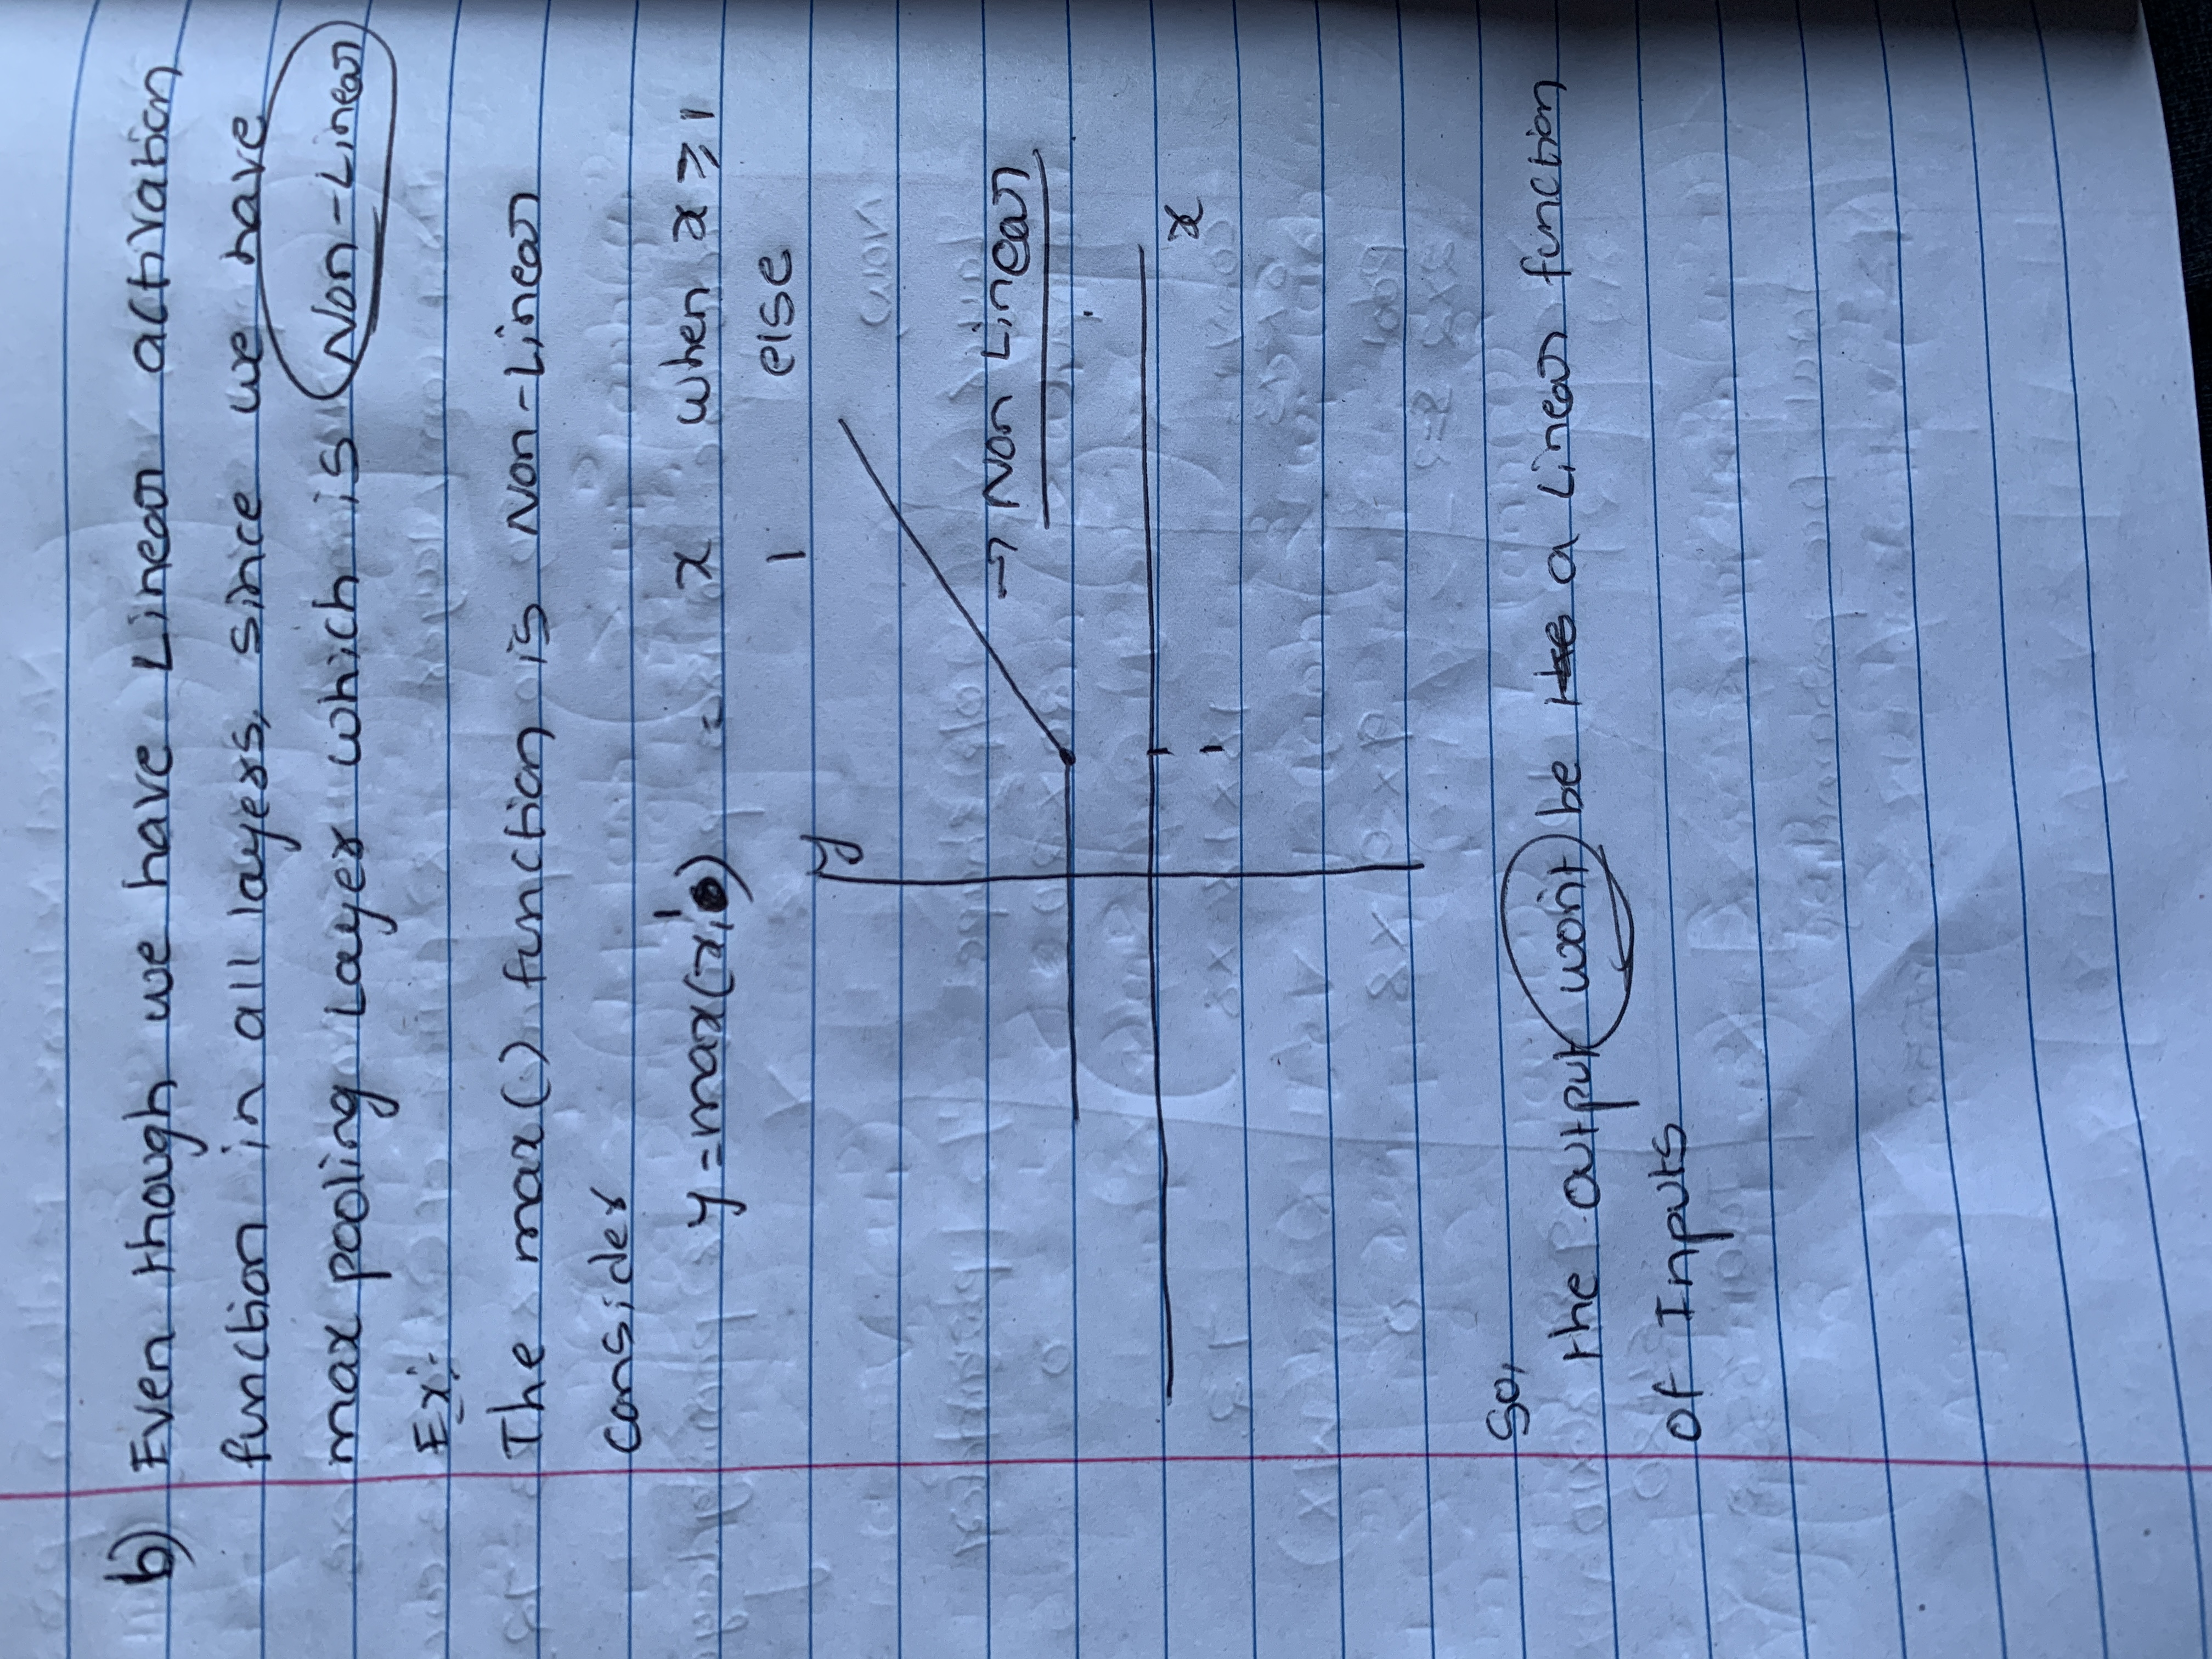 b) Even though we have Linear activation
function in all layers, since we have
max pooling Layer which is Non-Linear
Ex:-
The max() function is Non-Linear
consider
y = max(x, 1) = x when x ≥ 1
1 else
y
→ Non Linear
x
1
So,
the output won't be the a Linear function
of Inputs